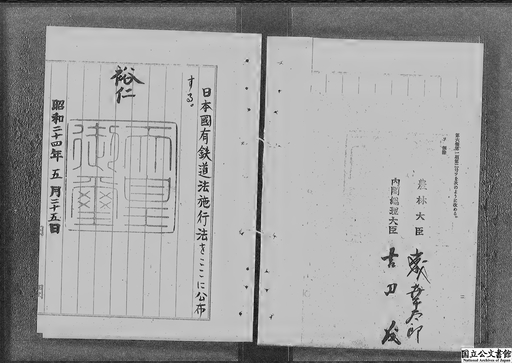 農林大臣
内閣総理大臣
吉田茂
日本國有鉄道法施行法をここに公布
する。
裕仁
天皇
御璽
昭和二十四年五月二十五日
国立公文書館
National Archives of Japan